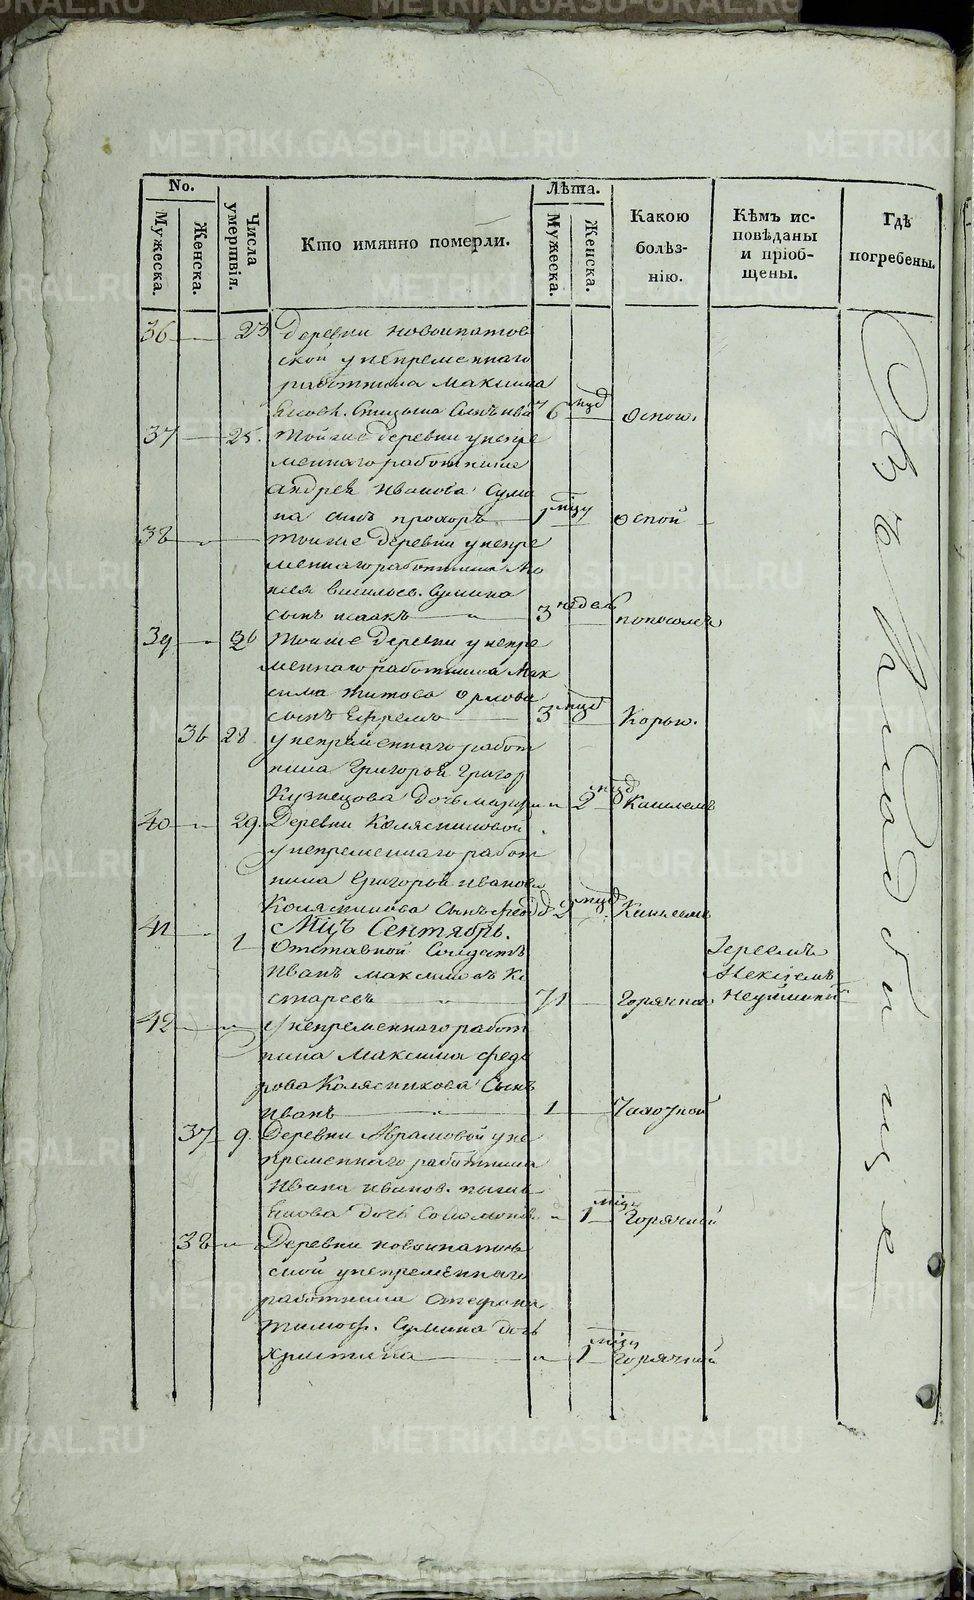 METRIKI.GASO-URAL.RU
No.
Мужеска.
Женска.
Числа умертвія.
Кто имянно померли.
Лѣта.
Мужеска.
Женска.
Какою болѣз-
нію.
Кѣмъ ис-
повѣданы
и пріоб-
щены.
Гдѣ
погребены.
36 23 Деревни Новоипатов
ской у непременнаго
работника Максима
6 мцд Оспою.
37 25. Той же деревни у непре
меннаго работника
Андрея Иванова Суми
на сынъ Прохоръ 1 мцу оспой
38 Той же деревни у непре
меннаго работника Мо
сея Васильев. Сумина
сынъ Исаакъ 3 недел
39 26 Той же деревни у непре
меннаго работника Мак
сима Титова Орлова
сынъ Ефремъ 3 мцд Корью.
36 28. у непременнаго работ
ника Григорья Григор
Кузнецова дочь 2 мцд Кашлемъ
40 29. Деревни Колясниковой
у непременнаго работ
ника Григорья Иванова
Колясникова сынъ 2 мцд Кашлемъ
41 Мцъ Сентябрь.
1 Отставной солдатъ Іереемъ
Иванъ Максимовъ Ки Алексіемъ
старевъ 71 Горячка
42 у непременнаго работ
ника Максима Федо
рова Колясникова сынъ
Иванъ 1 Чахоткой
37 9. Деревни Абрамовой у не
пременнаго работника
Ивана Иванов.
дочь Соломонія 1 мцу Горячкой
38 Деревни Новоипатов
ской у непременнаго
работника Стефана
Тимоф. Сумина дочь
Христина 1 мцу Горячкой
На кладбище